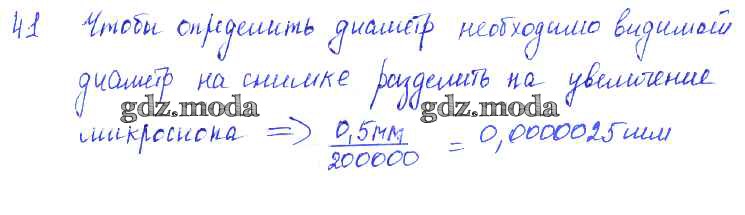 41 Чтобы определить диаметр необходимо видимый
диаметр на снимке разделить на увеличение
gdz.moda gdz.moda
микроскопа => 0,5мм/200000 = 0,0000025мм